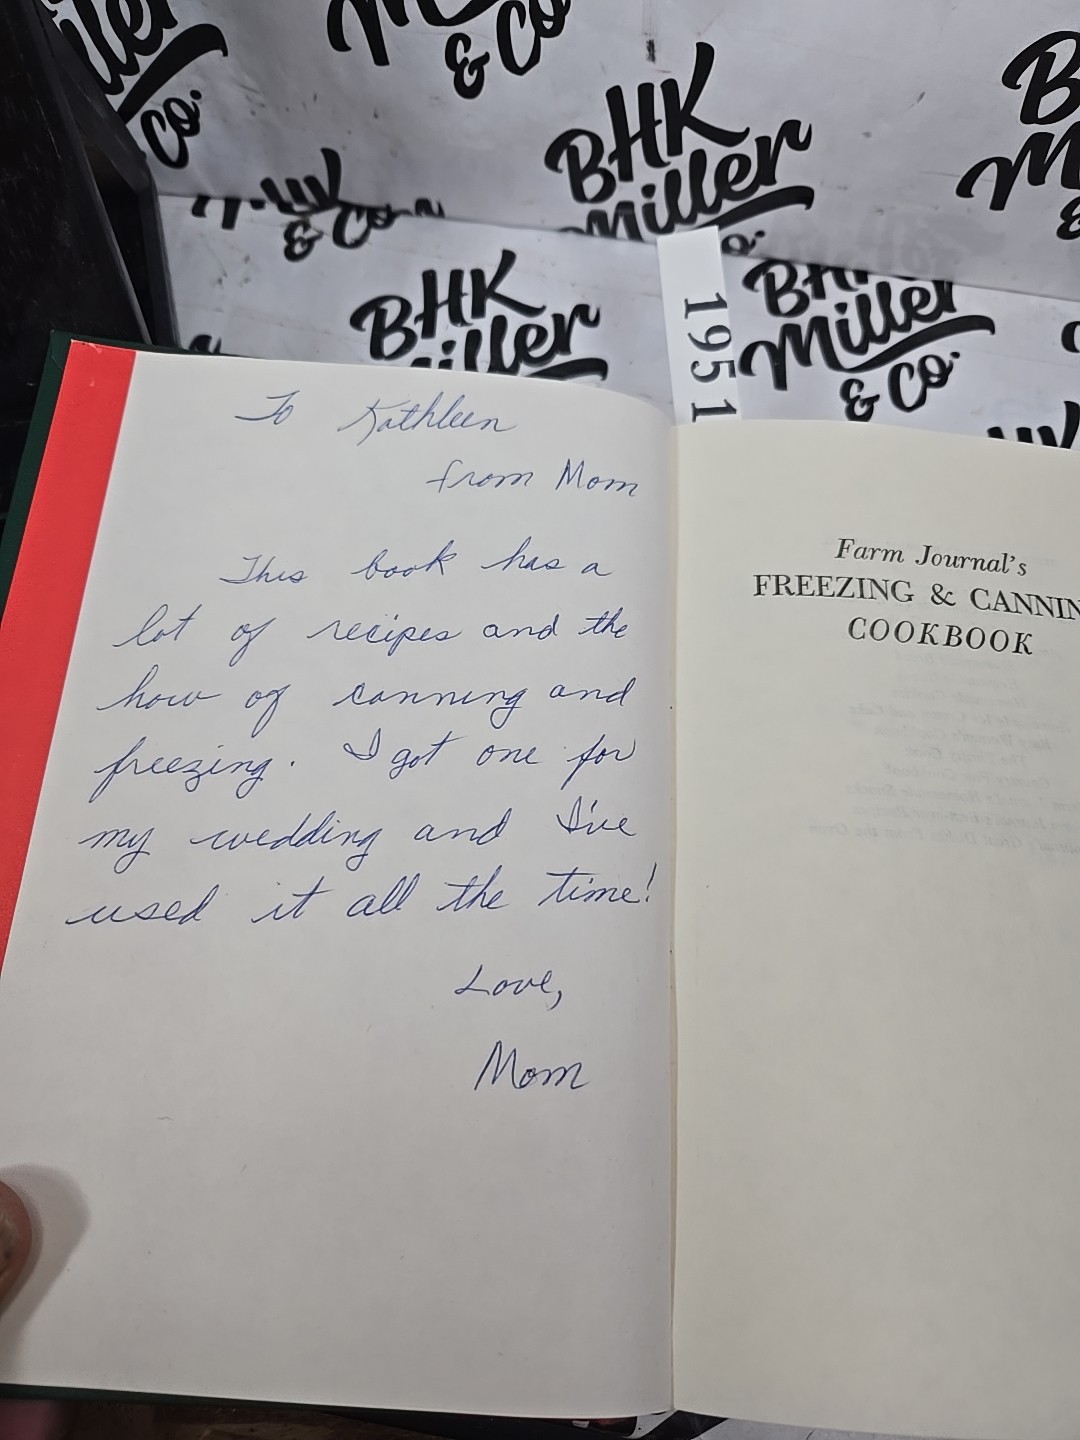 BHK
Miller
& Co.
1951
To Kathleen
from Mom
This book has a
lot of recipes and the
how of canning and
freezing. I got one for
my wedding and I've
used it all the time!
Love,
Mom
Farm Journal's
FREEZING & CANNIN
COOKBOOK